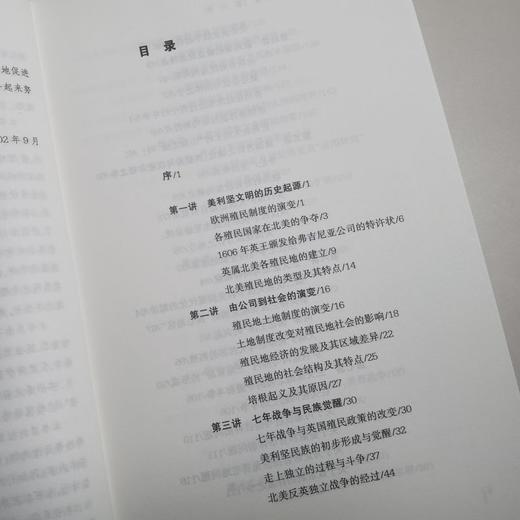 地促进
一起来努
02年9月
目 录
序/1
第一讲 美利坚文明的历史起源/1
欧洲殖民制度的演变/1
各殖民国家在北美的争夺/3
1606年英王颁发给弗吉尼亚公司的特许状/6
英属北美各殖民地的建立/9
北美殖民地的类型及其特点/14
第二讲 由公司到社会的演变/16
殖民地土地制度的演变/16
土地制度改变对殖民地社会的影响/18
殖民地经济的发展及其区域差异/22
殖民地的社会结构及其特点/25
培根起义及其原因/27
第三讲 七年战争与民族觉醒/30
七年战争与英国殖民政策的改变/30
美利坚民族的初步形成与觉醒/32
走上独立的过程与斗争/37
北美反英独立战争的经过/44